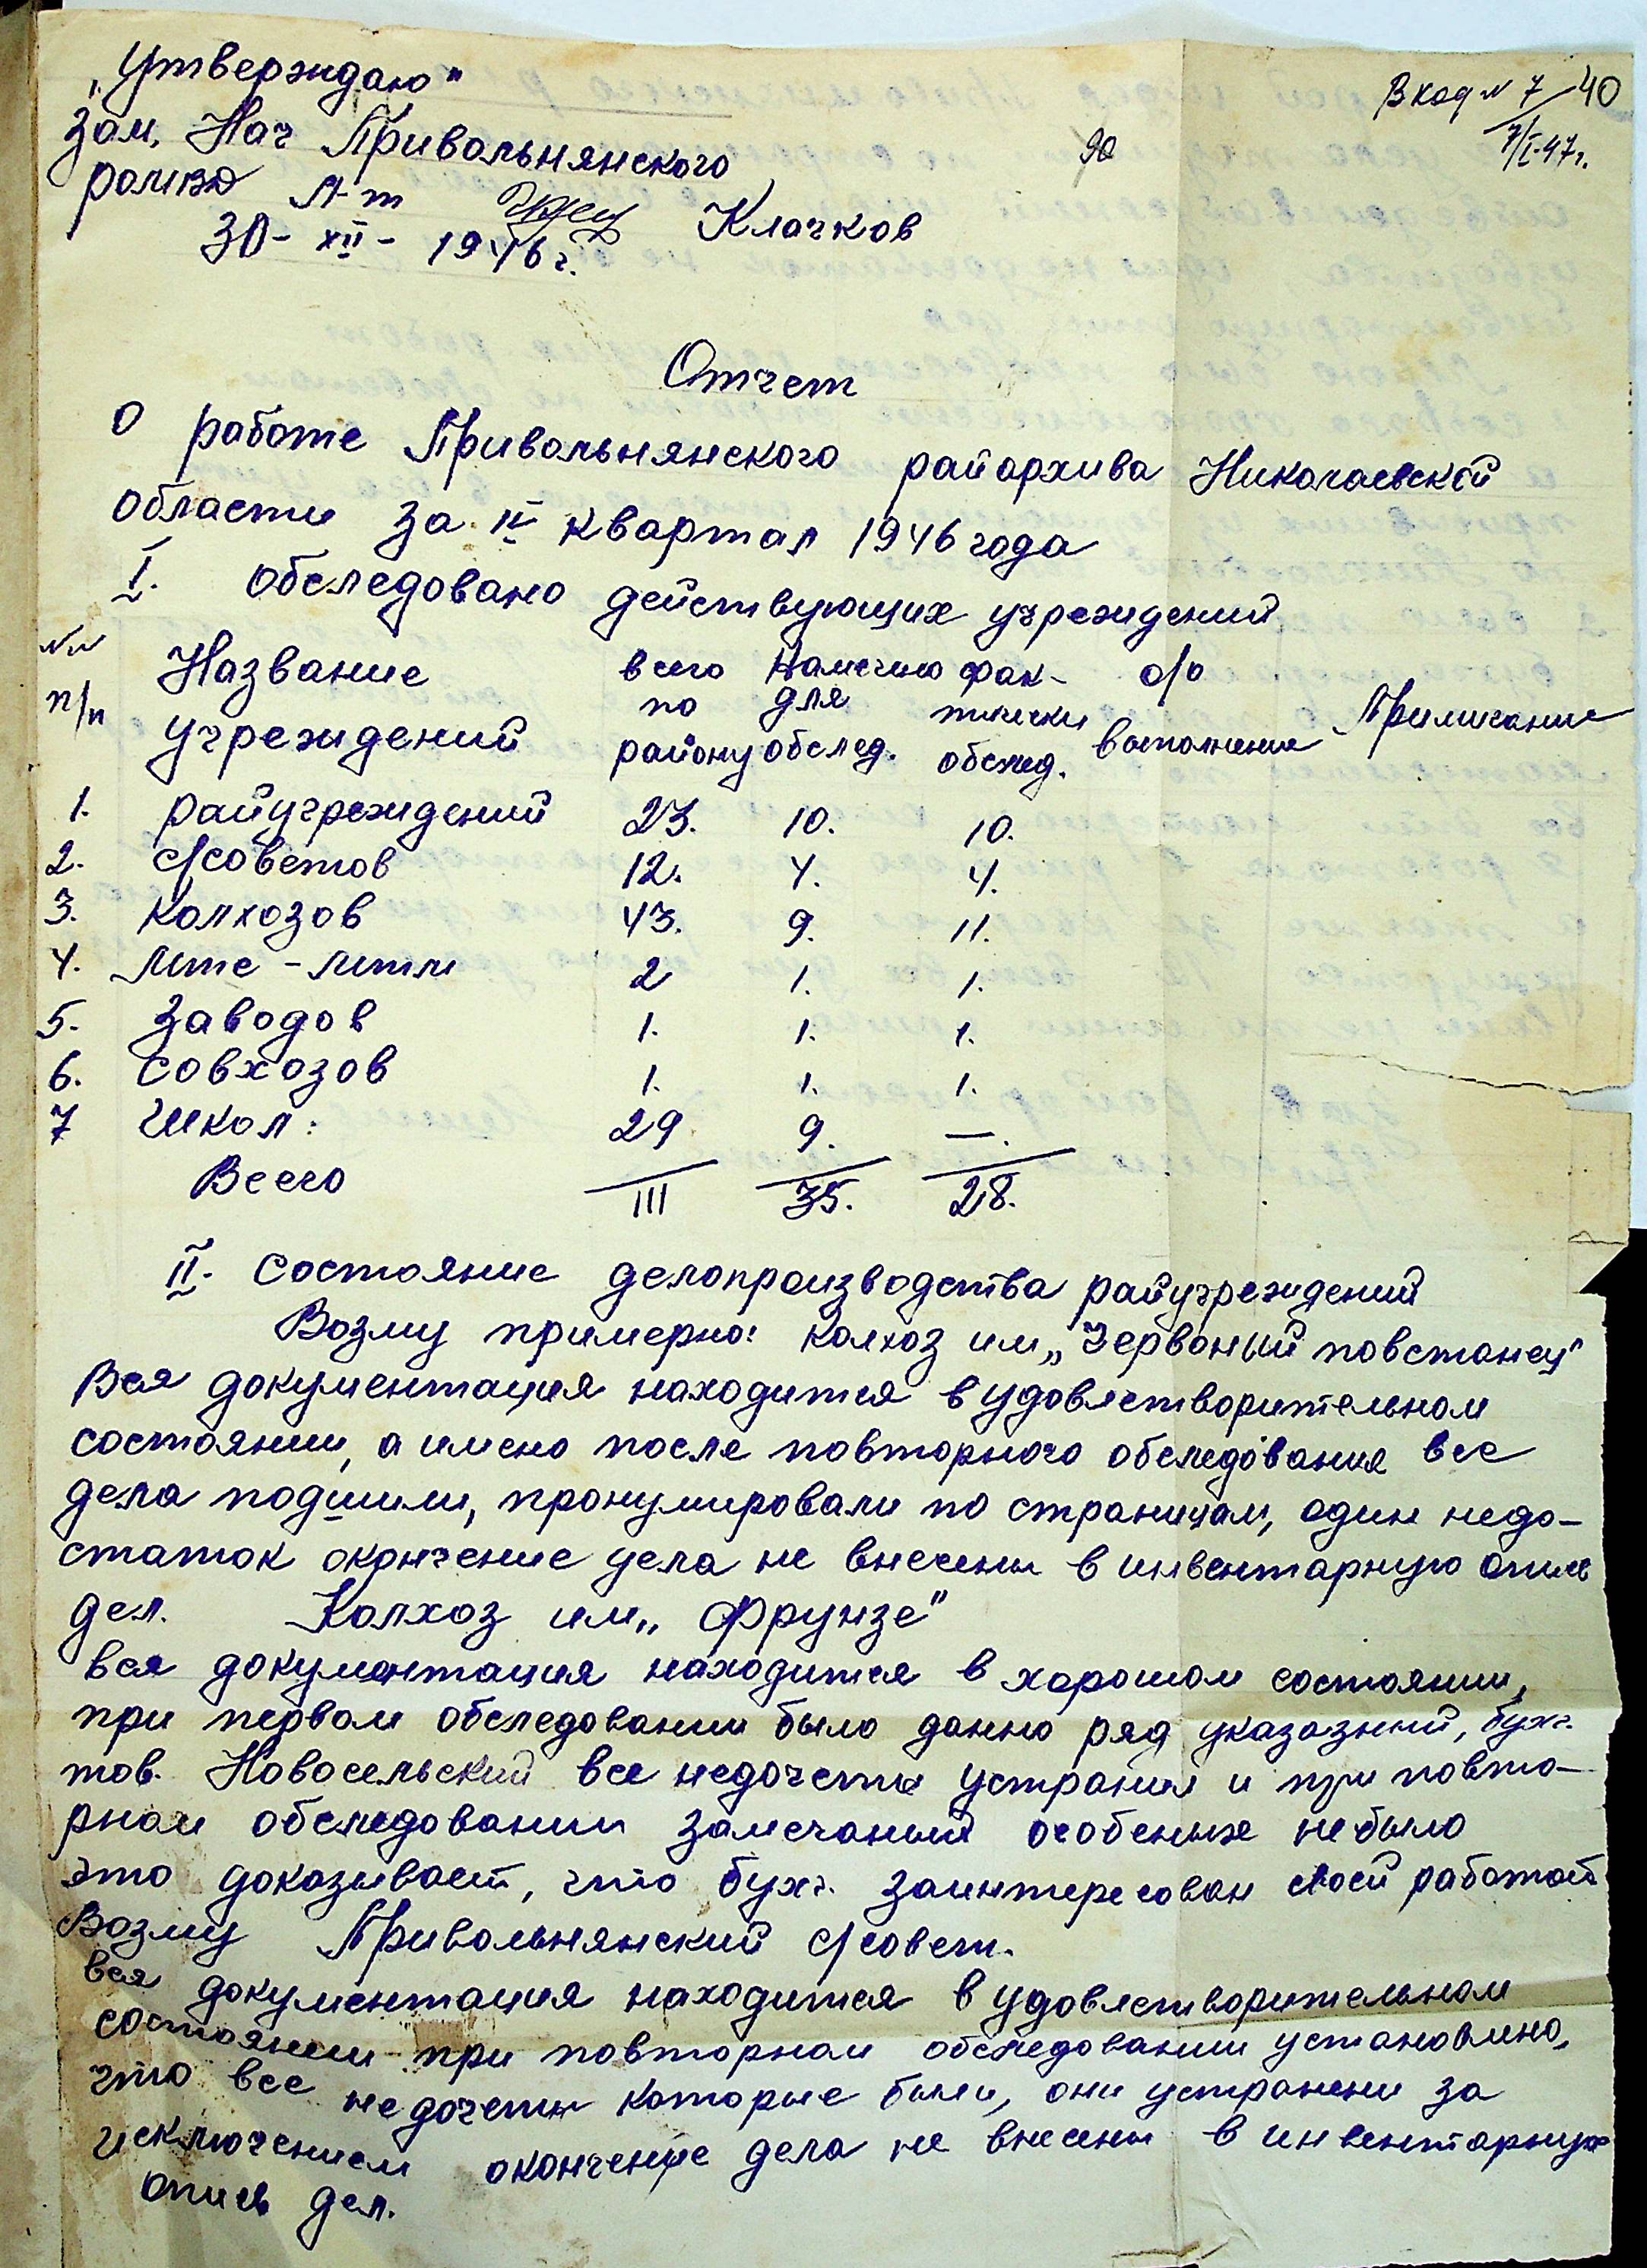 „Утверждаю"
Вход № 7/40
7/I-47г.
90
Зам. Нач Привольнянского
РОМВД Л-т Клачков
30-XII-1946 г.
Отчет
О работе Привольнянского райархива Николаевской
области за IV квартал 1946 года
I. Обследовано действующих учреждений
№№ п/п Название учреждений всего по району Намечено для обслед. фактически обслед. о/о выполнения Примичание
1. райучреждений 23. 10. 10.
2. с/советов 12. 4. 4.
3. Колхозов 43. 9. 11.
4. Мтс - мтм 2 1. 1.
5. Заводов 1. 1. 1.
6. Совхозов 1. 1. 1.
7 Школ: 29 9. —.
Всего 111 35. 28.
II. Состояние делопроизводства райучреждений
Возму примерно: колхоз им „Червоный повстанец"
Вся документация находится в удовлетворительном
состоянии, а имено после повторного обследования все
дела подшили, пронумировали по страницам, один недо-
статок окончение дела не внесены в инвентарную опись
дел. Колхоз им „Фрунзе"
вся документация находится в хорошом состоянии,
при первом обследовании было данно ряд указазний, бухг.
тов. Новосельский все недочеты устранил и при повто-
рном обследовании замечаний особеных небыло
это доказывает, что бухг. заинтересован своей работой
Возму Привольнянский с/совет.
вся документация находится в удовлетворительном
состоянии при повторном обследовании установлено,
что все недочеты которые были, они устранени за
исключением окончение дела не внесены в инвентарную
опись дел.